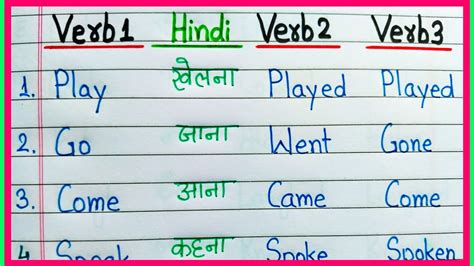 Verb1 Hindi Verb2 Verb3
1. Play खेलना Played Played
2. Go जाना Went Gone
3. Come आना Came Come
4 Speak कहना Spoke Spoken